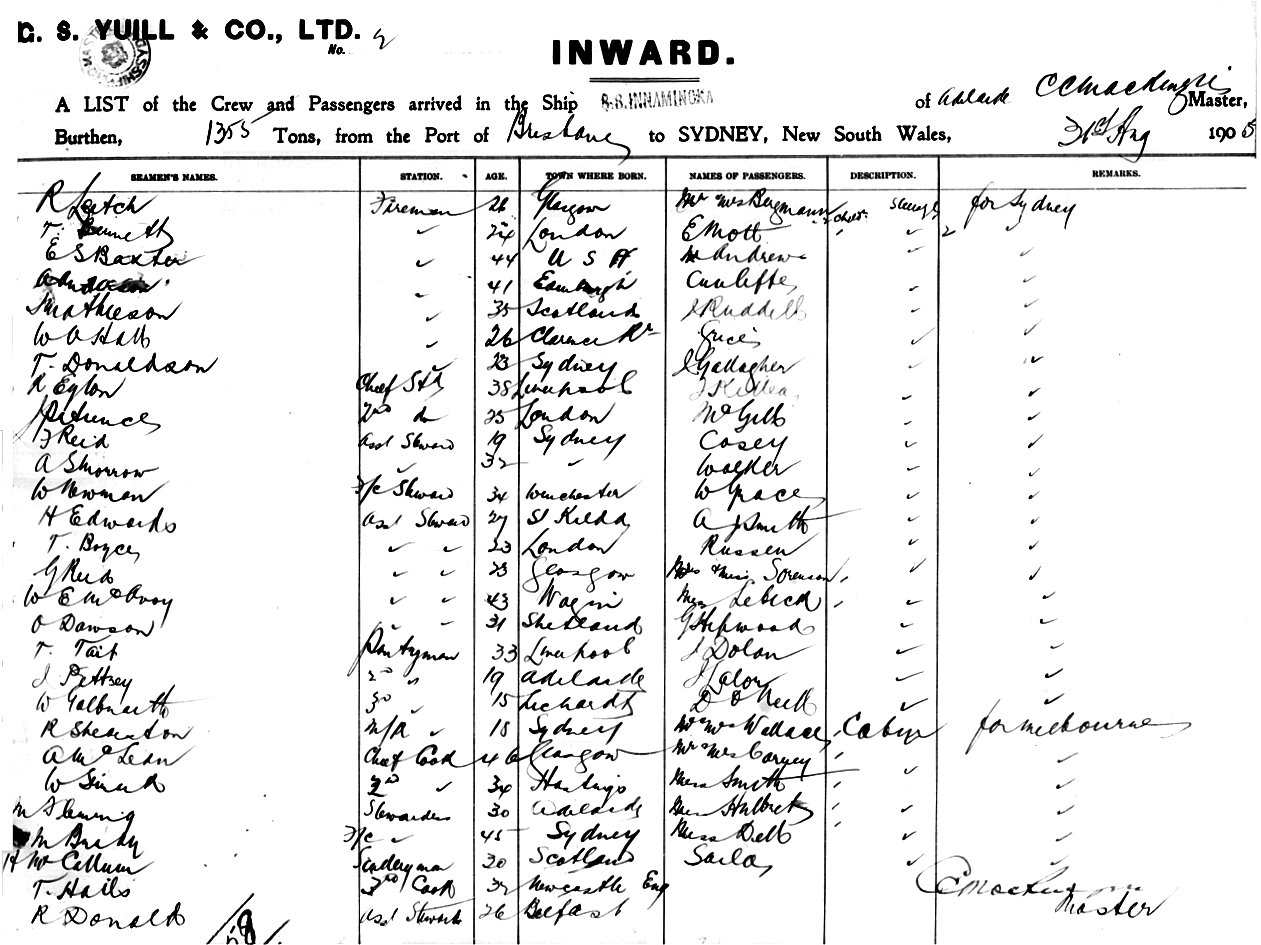 G. S. YUILL & CO., LTD.
No. 2
INWARD.
A LIST of the Crew and Passengers arrived in the Ship S.S. INNAMINCKA of Adelaide C C Mackenzie Master,
Burthen, 1355 Tons, from the Port of Brisbane to SYDNEY, New South Wales, 31st Aug 1905
SEAMEN'S NAMES. STATION. AGE. TOWN WHERE BORN. NAMES OF PASSENGERS. DESCRIPTION. REMARKS.
R Leitch Fireman 26 Glasgow Mr Mrs Bergmann for Sydney
T. Bennett ✓ 24 London E Mott ✓
E S Baxter ✓ 44 U S A Andrew ✓ ✓
✓ 41 Edinburgh Cunliffe ✓ ✓
Mathieson ✓ 35 Scotland J Ruddell ✓ ✓
W A Hall ✓ 26 Clarence Rr Grice ✓ ✓
T. Donaldson ✓ 23 Sydney J Gallagher ✓ ✓
R Eglon Chief Std 38 Liverpool J Killea ✓ ✓
J Patience 2nd do 25 London McGill ✓ ✓
J Reid Asst Steward 19 Sydney Casey ✓ ✓
A S Morrow ✓ 32 " Walker ✓ ✓
W Newman F/c Steward 34 Winchester W Grace ✓ ✓
H Edwards Asst Steward 27 St Kilda A J Smith ✓ ✓
T. Boyce ✓ ✓ 23 London Russen ✓ ✓
G Reid ✓ ✓ 23 Glasgow Mrs & Miss Sorenson ✓ ✓
W E McAvoy ✓ ✓ 43 Miss ✓ ✓
O Dawson ✓ 31 Shetland G Hopwood ✓ ✓
T. Tait Pantryman 33 Liverpool J Dolan ✓ ✓
J 2nd " 19 Adelaide J Lalor ✓ ✓
W Galbraith 3rd ✓ 15 Leichardt D O Neill ✓ ✓
R Shearston M/R ✓ 18 Sydney Mr Mrs Wallace Cabin for Melbourne
A McLean Chief Cook 46 Glasgow Mr Mrs Carney ✓ ✓
W 2nd ✓ 34 Hastings Miss Smyth ✓ ✓
M Fleming Stewardess 30 Adelaide Miss ✓ ✓
M F/c ✓ 45 Sydney Miss Dell ✓ ✓
H McCallum 30 Scotland ✓ ✓
T. Hails 3rd Cook 32 Newcastle Eng C C Mackenzie
R Donald Asst Steward 26 Belfast Master